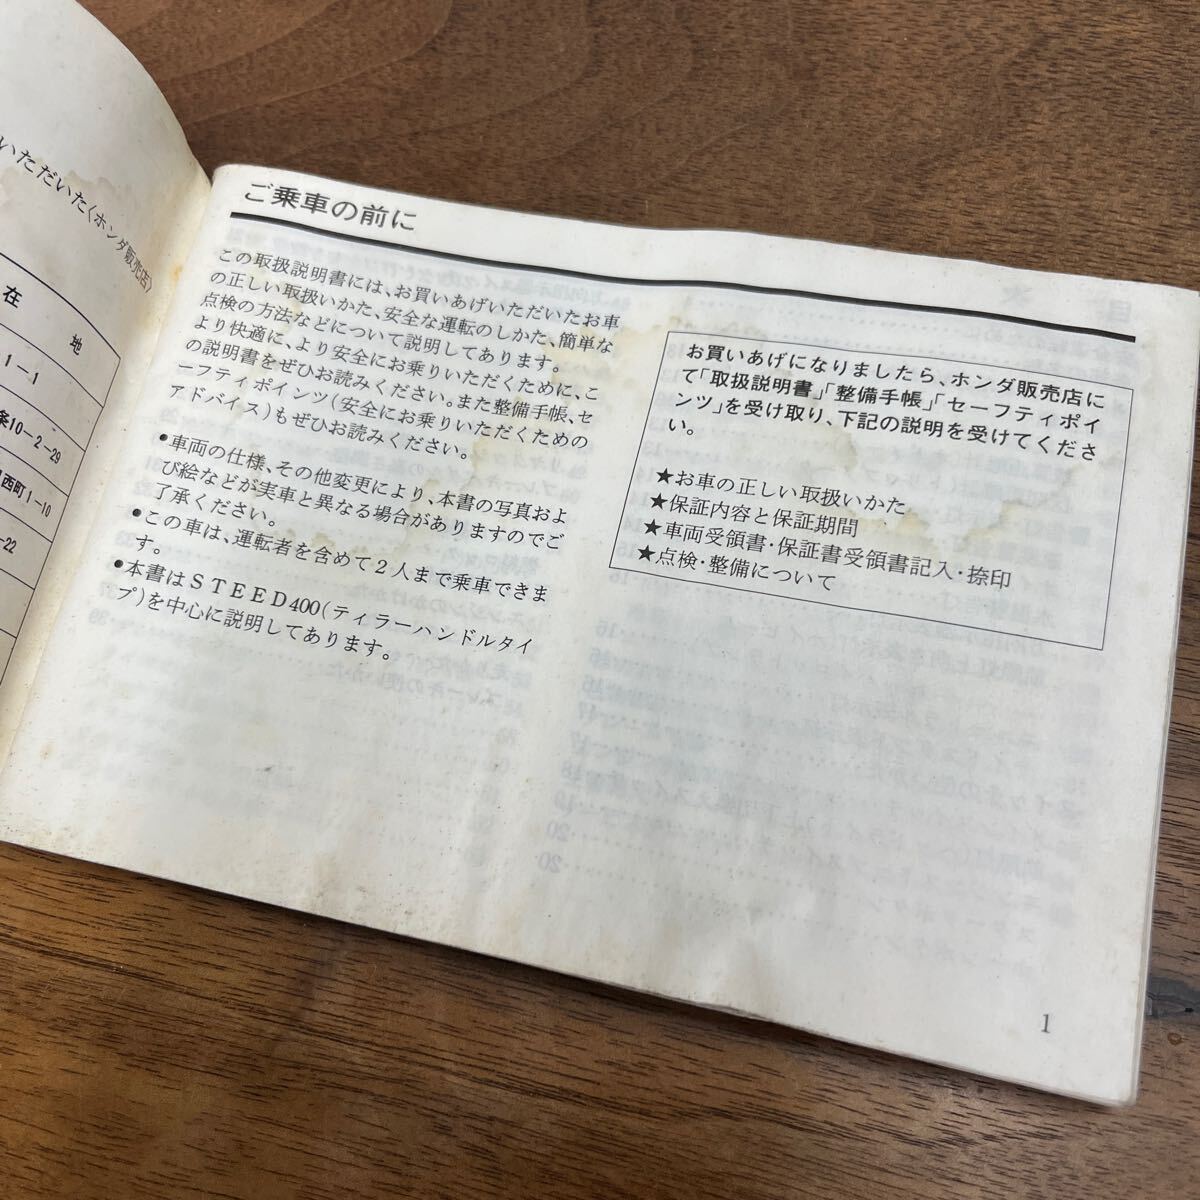 いただいた〈ホンダ販売店〉
在 地
1-1
条10-2-29
西町1-10
-22
ご乗車の前に
この取扱説明書には、お買いあげいただいたお車
の正しい取扱いかた、安全な運転のしかた、簡単な
点検の方法などについて説明してあります。
より快適に、より安全にお乗りいただくために、こ
の説明書をぜひお読みください。また整備手帳、セ
ーフティポインツ(安全にお乗りいただくための
アドバイス)もぜひお読みください。
●車両の仕様、その他変更により、本書の写真およ
び絵などが実車と異なる場合がありますのでご
了承ください。
●この車は、運転者を含めて2人まで乗車できま
す。
●本書はSTEED400(ティラーハンドルタイ
プ)を中心に説明してあります。
お買いあげになりましたら、ホンダ販売店に
て「取扱説明書」「整備手帳」「セーフティポイ
ンツ」を受け取り、下記の説明を受けてくださ
い。
★お車の正しい取扱いかた
★保証内容と保証期間
★車両受領書・保証書受領書記入・捺印
★点検・整備について
1